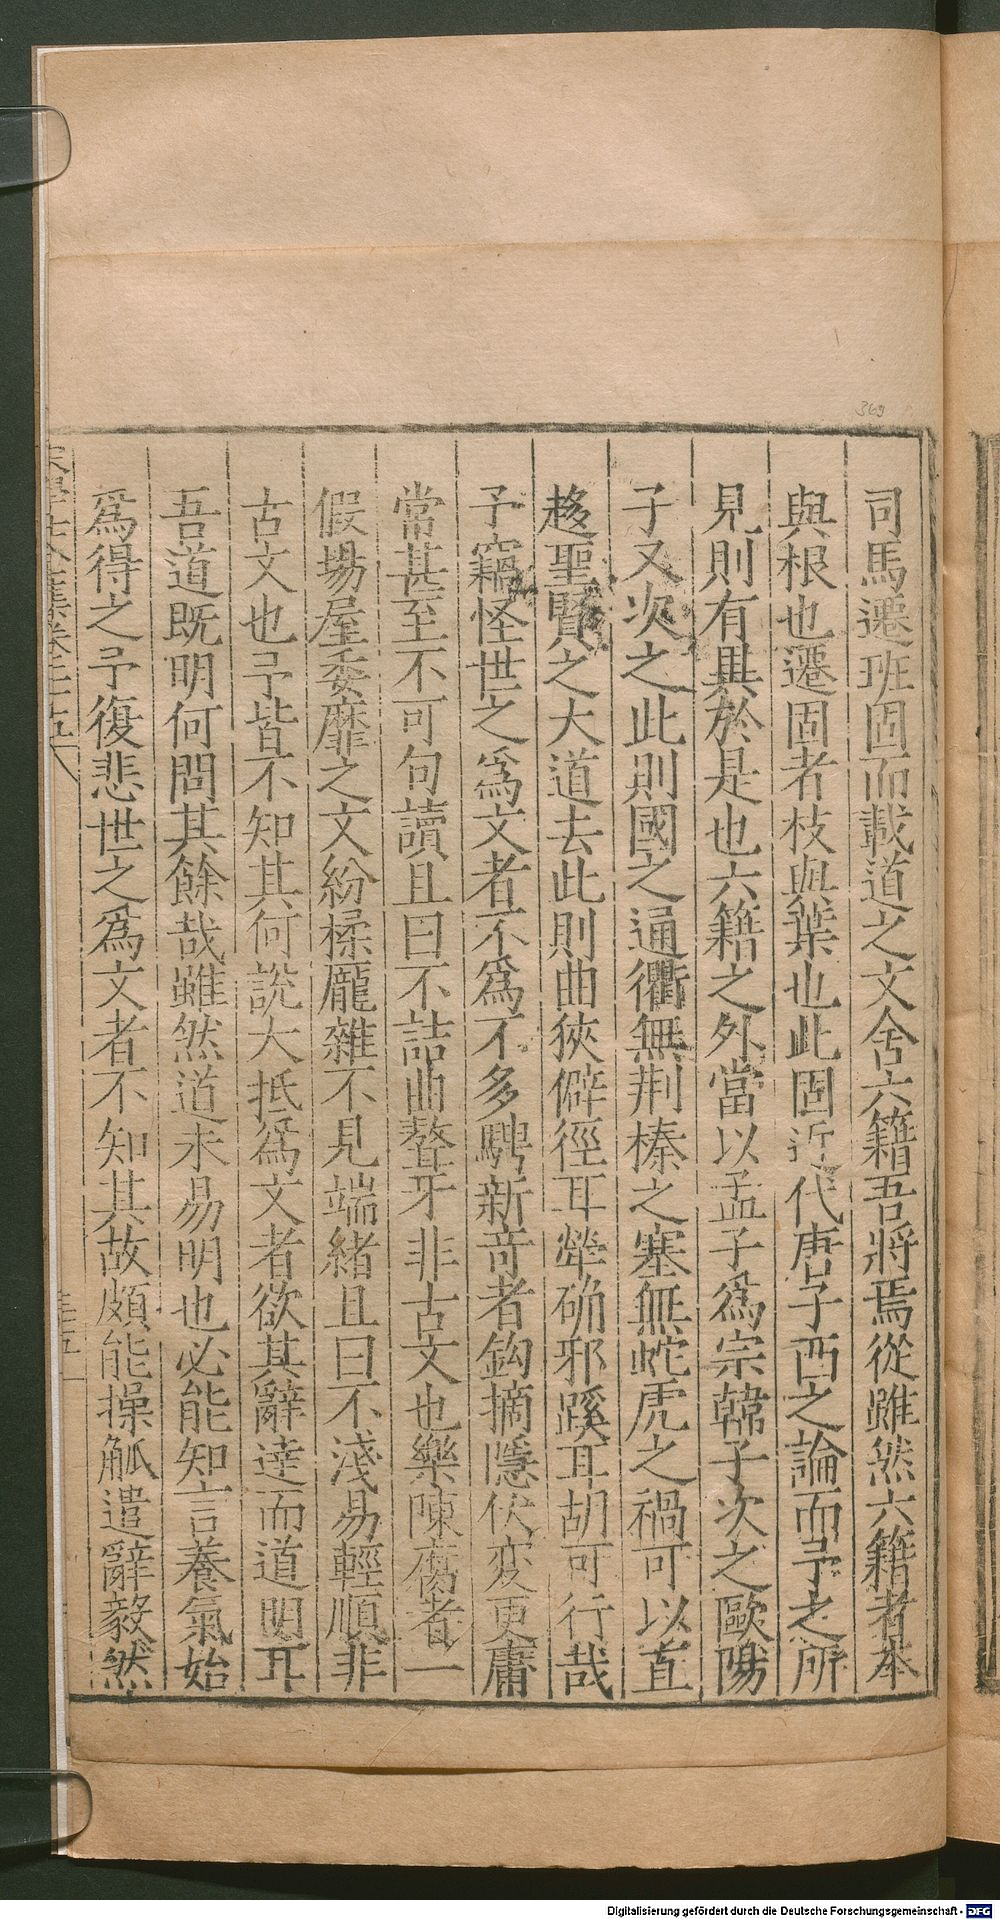 司馬遷班固而載道之文舍六籍吾將焉從雖然六籍者本
與根也遷固者枝與葉也此固近代唐子西之論而予之所
見則有異於是也六籍之外當以孟子爲宗韓子次之歐陽
子又次之此則國之通衢無荆榛之塞無蛇虎之禍可以直
趍聖賢之大道去此則曲狹僻徑耳犖确邪蹊耳胡可行哉
予竊怪世之爲文者不爲不多騁新竒者鈎摘隱伏変更庸
常甚至不可句讀且曰不詰曲聱牙非古文也樂陳腐者一
假場屋委靡之文紛揉龐雜不見端緒且曰不淺易輕順非
古文也予皆不知其何說大抵爲文者欲其辭達而道明耳
吾道既明何問其餘哉雖然道未易明也必能知言養氣始
爲得之予復悲世之爲文者不知其故頗能操觚遣辭毅然
369
Digitalisierung gefördert durch die Deutsche Forschungsgemeinschaft - DFG